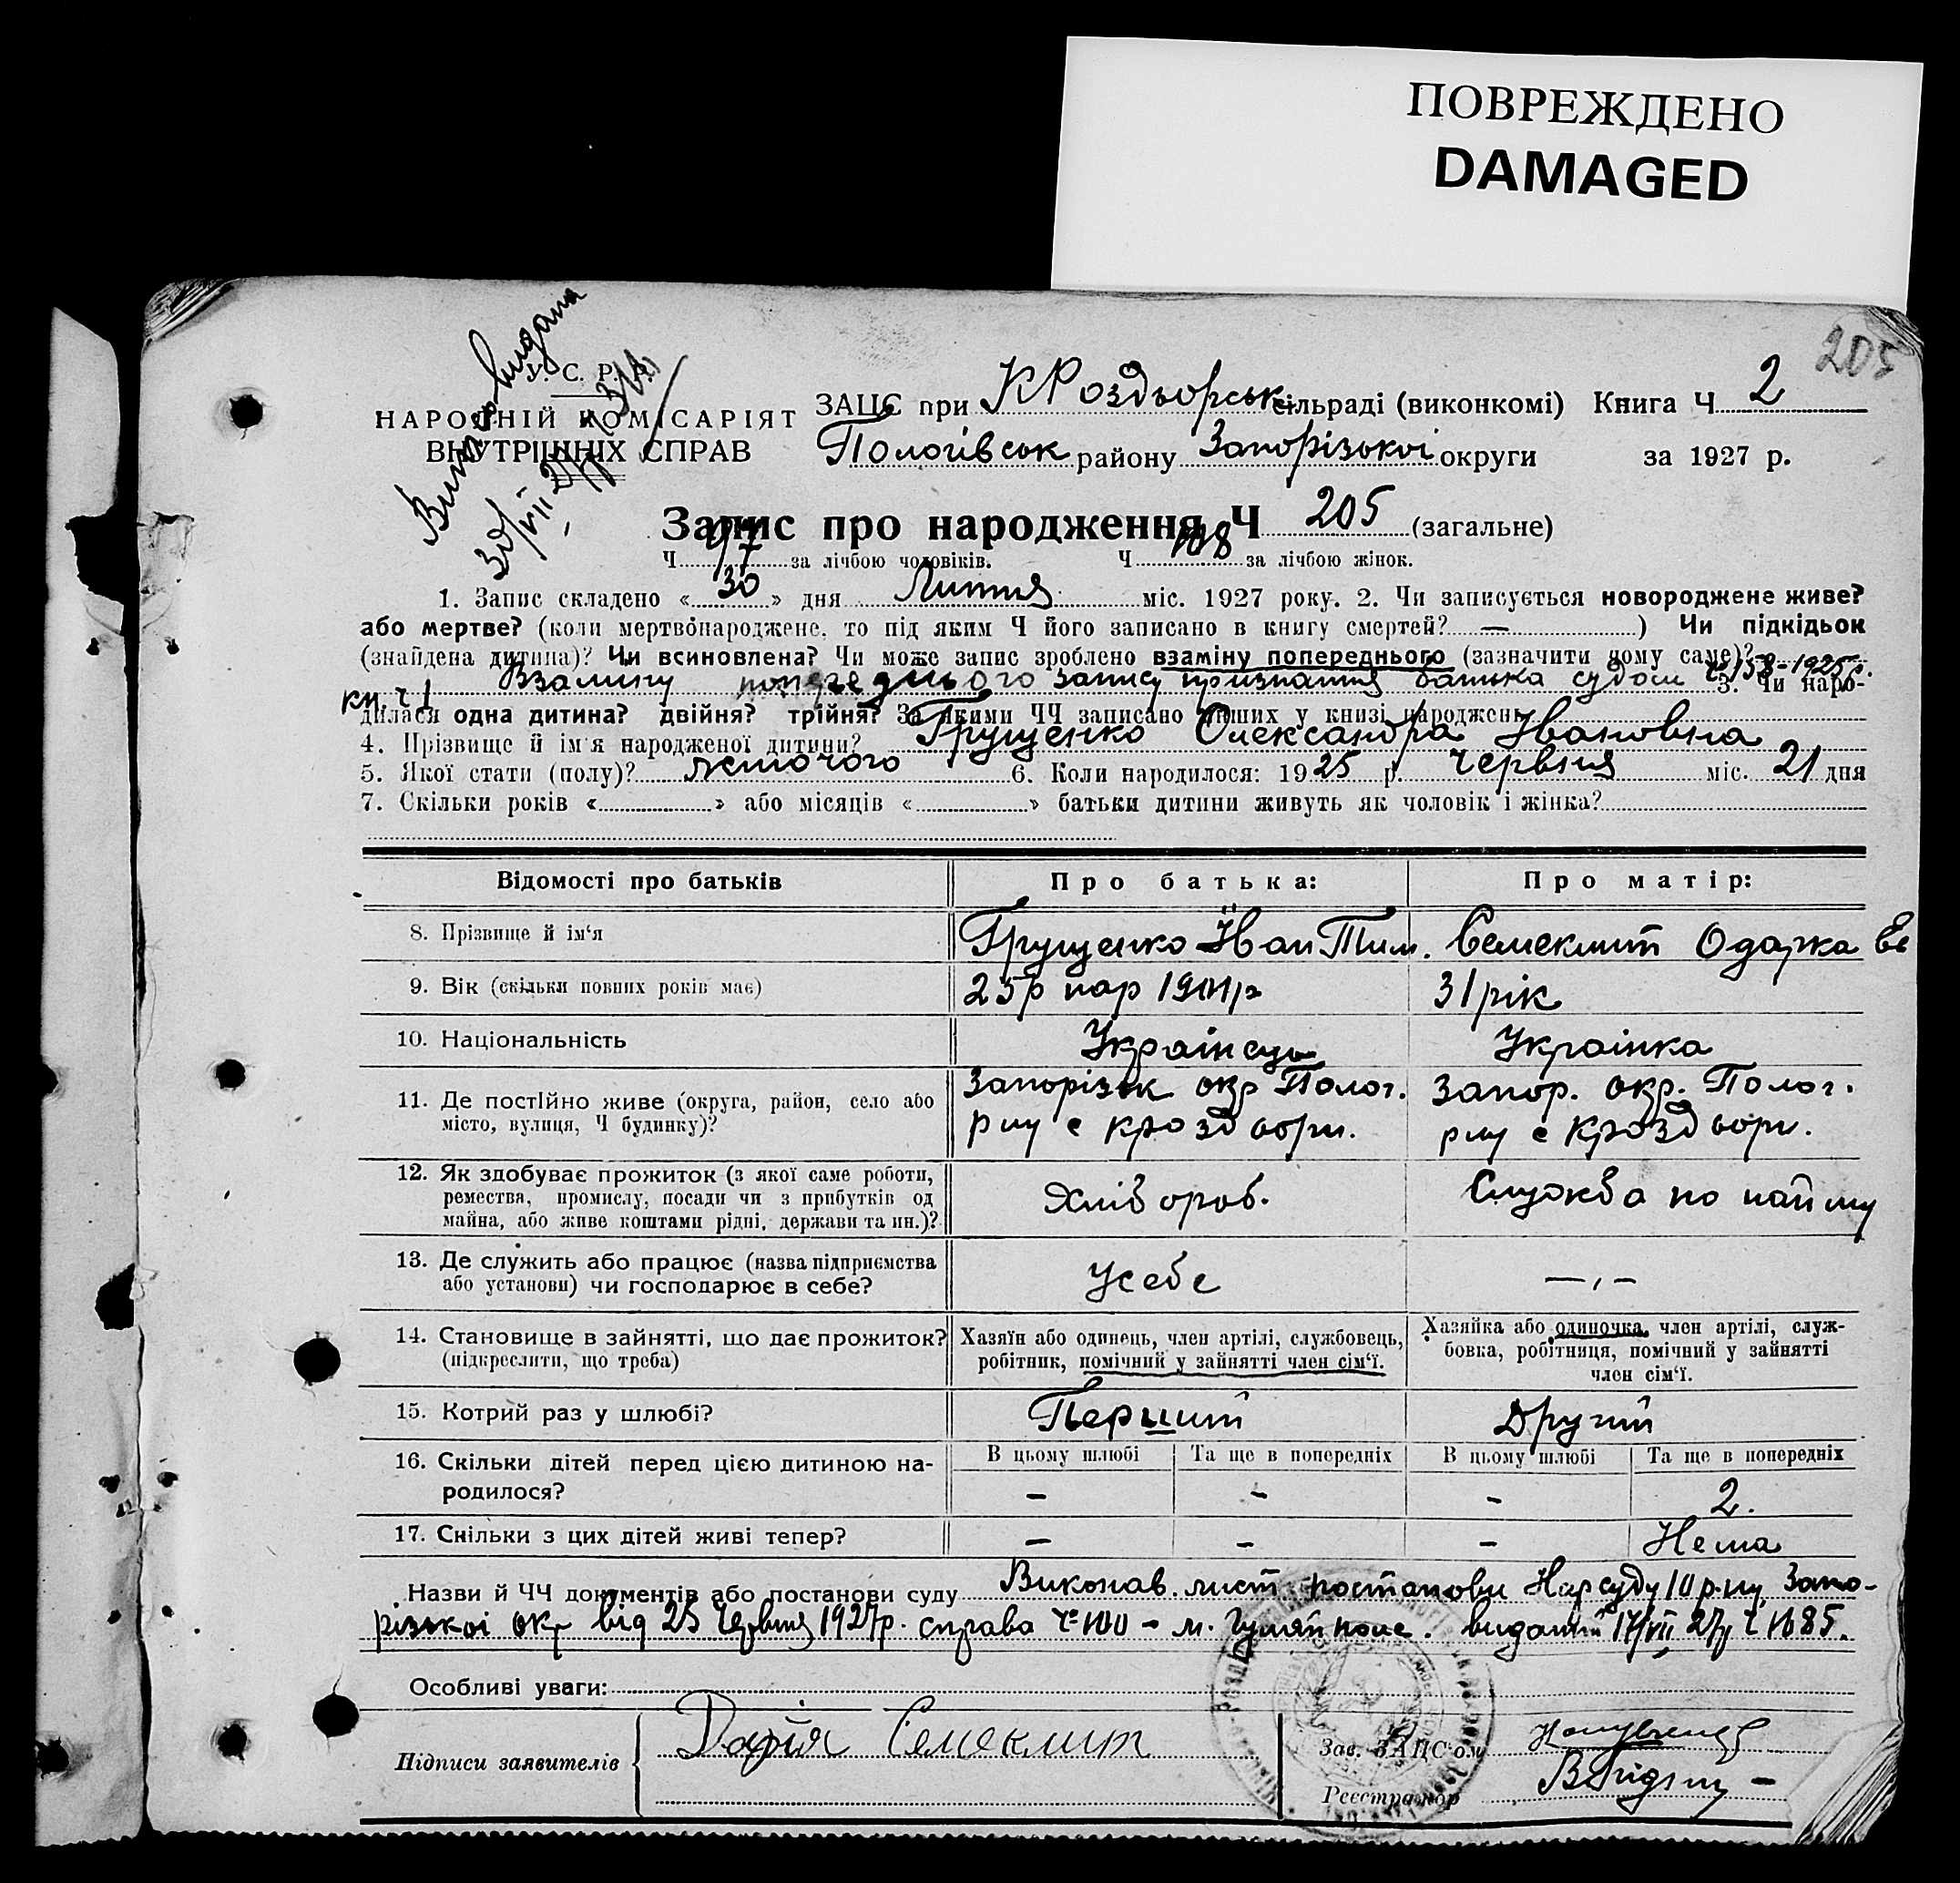 ПОВРЕЖДЕНО
DAMAGED
205
Випис видана
30/VII 27р
У. С. Р. Р.
НАРОДНІЙ КОМІСАРІЯТ
ВНУТРІШНІХ СПРАВ
ЗАЦС при КРоздьорськ сільраді (виконкомі) Книга Ч 2
Пологівськ району Запорізької округи за 1927 р.
Запис про народження Ч 205 (загальне)
Ч 97 за лічбою чоловіків. Ч 108 за лічбою жінок.
1. Запис складено « 30 » дня Липня міс. 1927 року. 2. Чи записується новороджене живе?
або мертве? (коли мертвонароджене, то під яким Ч його записано в книгу смертей? — ) Чи підкідьок
(знайдена дитина)? Чи всиновлена? Чи може запис зроблено взаміну попереднього (зазначити чому саме)?
кн. ч 1 Взаміну попереднього запису признання батька судом ч 158-1925р. 3. Чи наро-
дилася одна дитина? двійня? трійня? За якими ЧЧ записано інших у книзі народжень
4. Прізвище й ім'я народженої дитини? Грущенко Олександра Івановна
5. Якої стати (полу)? жіночого 6. Коли народилося: 1925 р. Червня міс. 21 дня
7. Скільки років « » або місяців « » батьки дитини живуть як чоловік і жінка?
Відомості про батьків Про батька: Про матір:
8. Прізвище й ім'я Грущенко Іван Тим. Семекмит Одарка Ев
9. Вік (скільки повних років має) 25р нар 1901р 31 рік
10. Національність Українець Українка
11. Де постійно живе (округа, район, село або Запорізьк окр Полог. Запор. окр. Полог.
місто, вулиця, Ч будинку)? р ну с Кроздорн. р ну с Кроздорн.
12. Як здобуває прожиток (з якої саме роботи,
ремества, промислу, посади чи з прибутків од Хлібороб. Служба по найму
майна, або живе коштами рідні, держави та ин.)?
13. Де служить або працює (назва підприємства
або установи) чи господарює в себе? Усебе —,—
14. Становище в зайнятті, що дає прожиток? Хазяїн або одинець, член артілі, службовець, Хазяйка або одиночка, член артілі, служ-
(підкреслити, що треба) робітник, помічний у зайнятті член сім'ї. бовка, робітниця, помічний у зайнятті
член сім'ї.
15. Котрий раз у шлюбі? Перший Другий
16. Скільки дітей перед цією дитиною на- В цьому шлюбі Та ще в попередніх В цьому шлюбі Та ще в попередніх
родилося? – – – 2.
17. Скільки з цих дітей живі тепер? – – – Нема
Назви й ЧЧ документів або постанови суду Виконав. лист постанови Нарсуду 10 р-ну Запо-
різької окр від 25 Червня 1927р. справа ч 100 – м. Гуляйполе. виданий 17/VII 27р ч 1685.
Особливі уваги:
Підписи заявителів Дарія Семекмит Зав. ЗАЦС'ом
Реєстратор